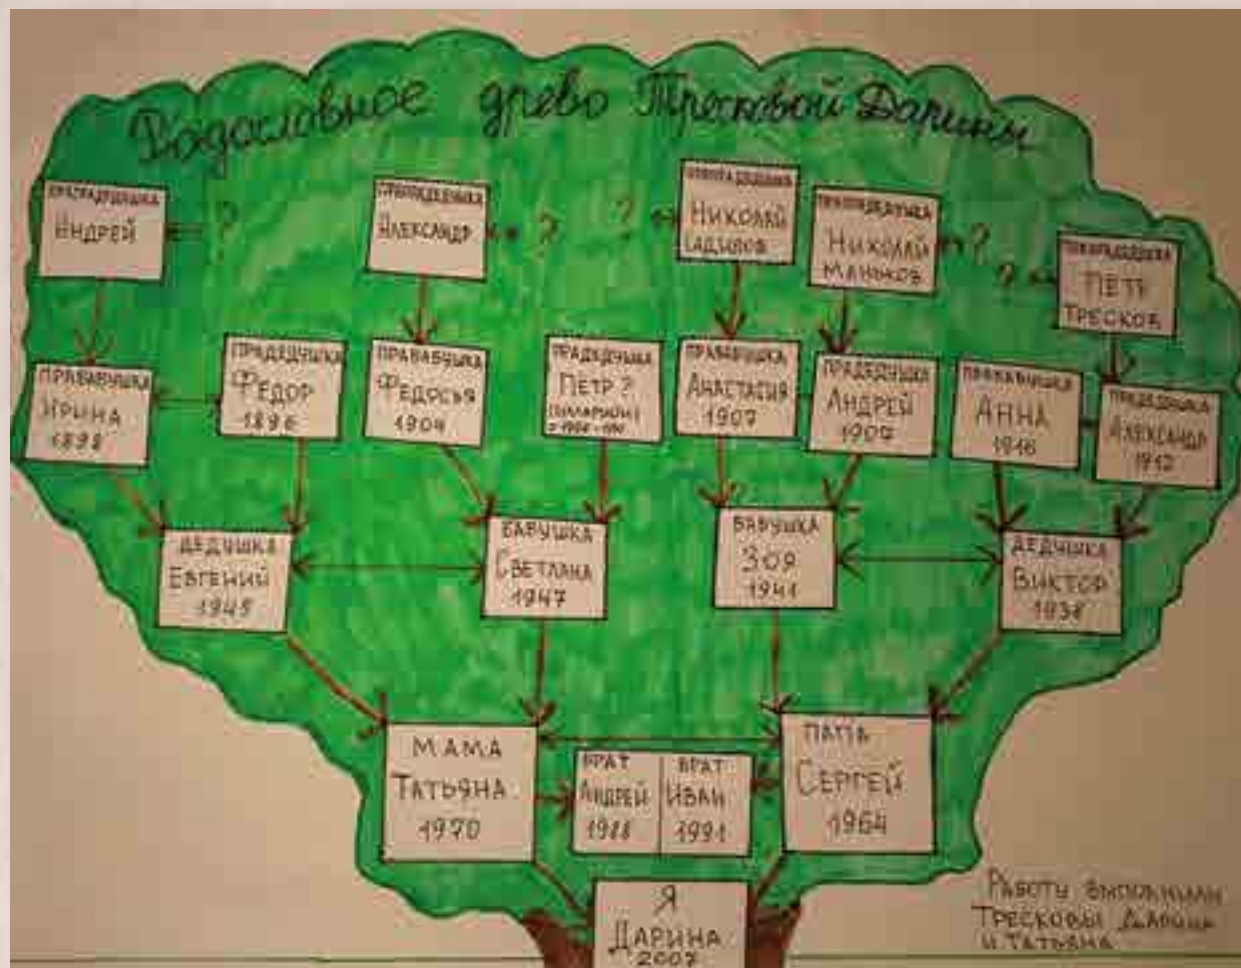 Родословное древо Тресковой Дарины
ПРАПРАДЕДУШКА
АНДРЕЙ
?
ПРАПРАДЕДУШКА
АЛЕКСАНДР
?
?
ПРАПРАДЕДУШКА
НИКОЛАЙ
ПРАПРАДЕДУШКА
НИКОЛАЙ
МАНЬКОВ
?
?
ПРАПРАДЕДУШКА
ПЁТР
ТРЕСКОВ
ПРАБАБУШКА
ИРИНА
1898
ПРАДЕДУШКА
ФЕДОР
1896
ПРАБАБУШКА
ФЕДОСЬЯ
1904
ПРАДЕДУШКА
ПЕТР ?
ПРАБАБУШКА
АНАСТАСИЯ
1907
ПРАДЕДУШКА
АНДРЕЙ
1907
ПРАБАБУШКА
АННА
1916
ПРАДЕДУШКА
АЛЕКСАНДР
1912
ДЕДУШКА
ЕВГЕНИЙ
1945
БАБУШКА
СВЕТЛАНА
1947
БАБУШКА
ЗОЯ
1941
ДЕДУШКА
ВИКТОР
1938
МАМА
ТАТЬЯНА
1970
БРАТ
АНДРЕЙ
1988
БРАТ
ИВАН
1991
ПАПА
СЕРГЕЙ
1964
Я
ДАРИНА
2007
РАБОТУ ВЫПОЛНИЛИ
ТРЕСКОВЫ ДАРИНА
И ТАТЬЯНА